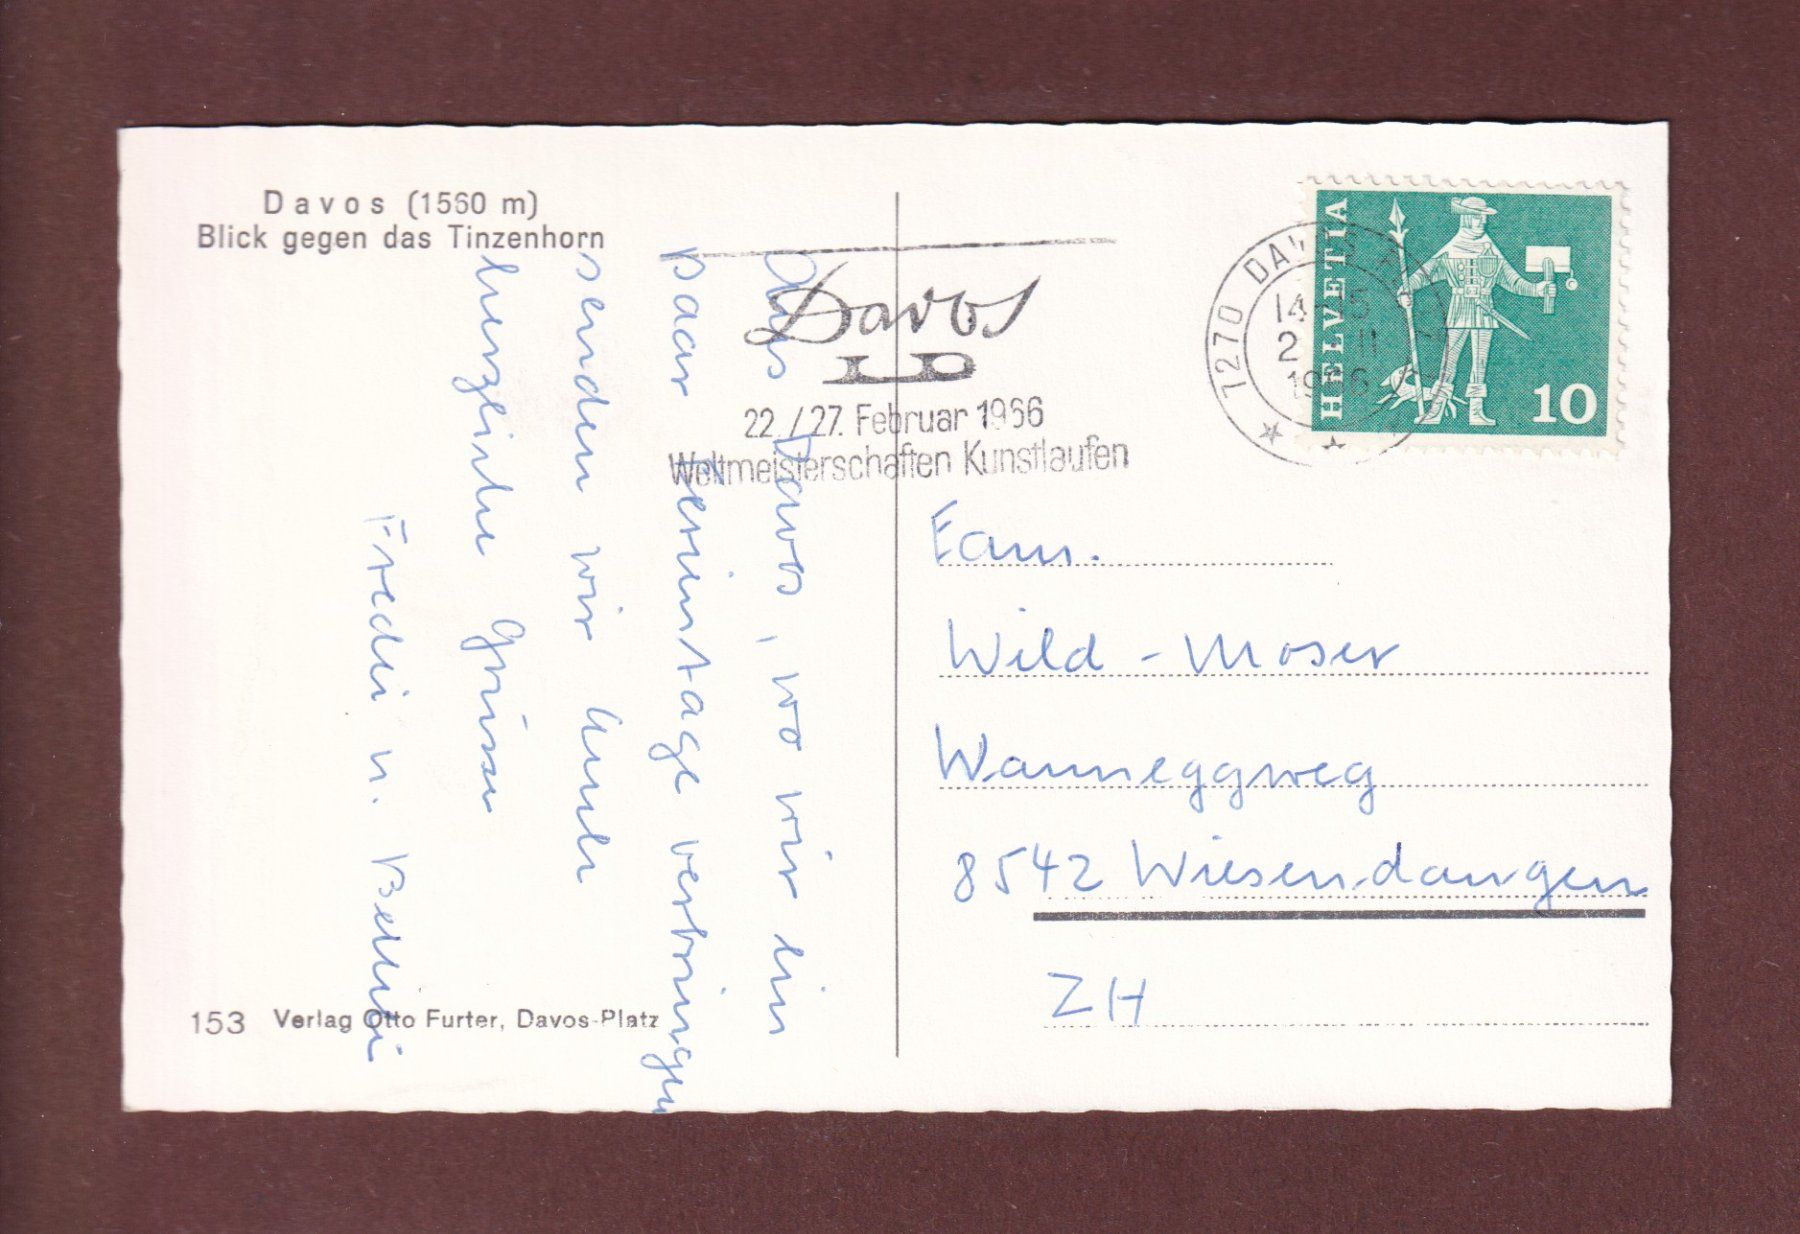 Davos (1560 m)
Blick gegen das Tinzenhorn
Aus Davos, wo wir ein
paar Ferientage verbringen
senden wir Euch
herzliche Grüsse
Fredi u.
153 Verlag Otto Furter, Davos-Platz
Davos
22./27. Februar 1966
Weltmeisterschaften Kunstlaufen
7270 DAVOS
1966
HELVETIA
10
Fam.
Wild - Moser
Wanneggweg
8542 Wiesendangen
ZH